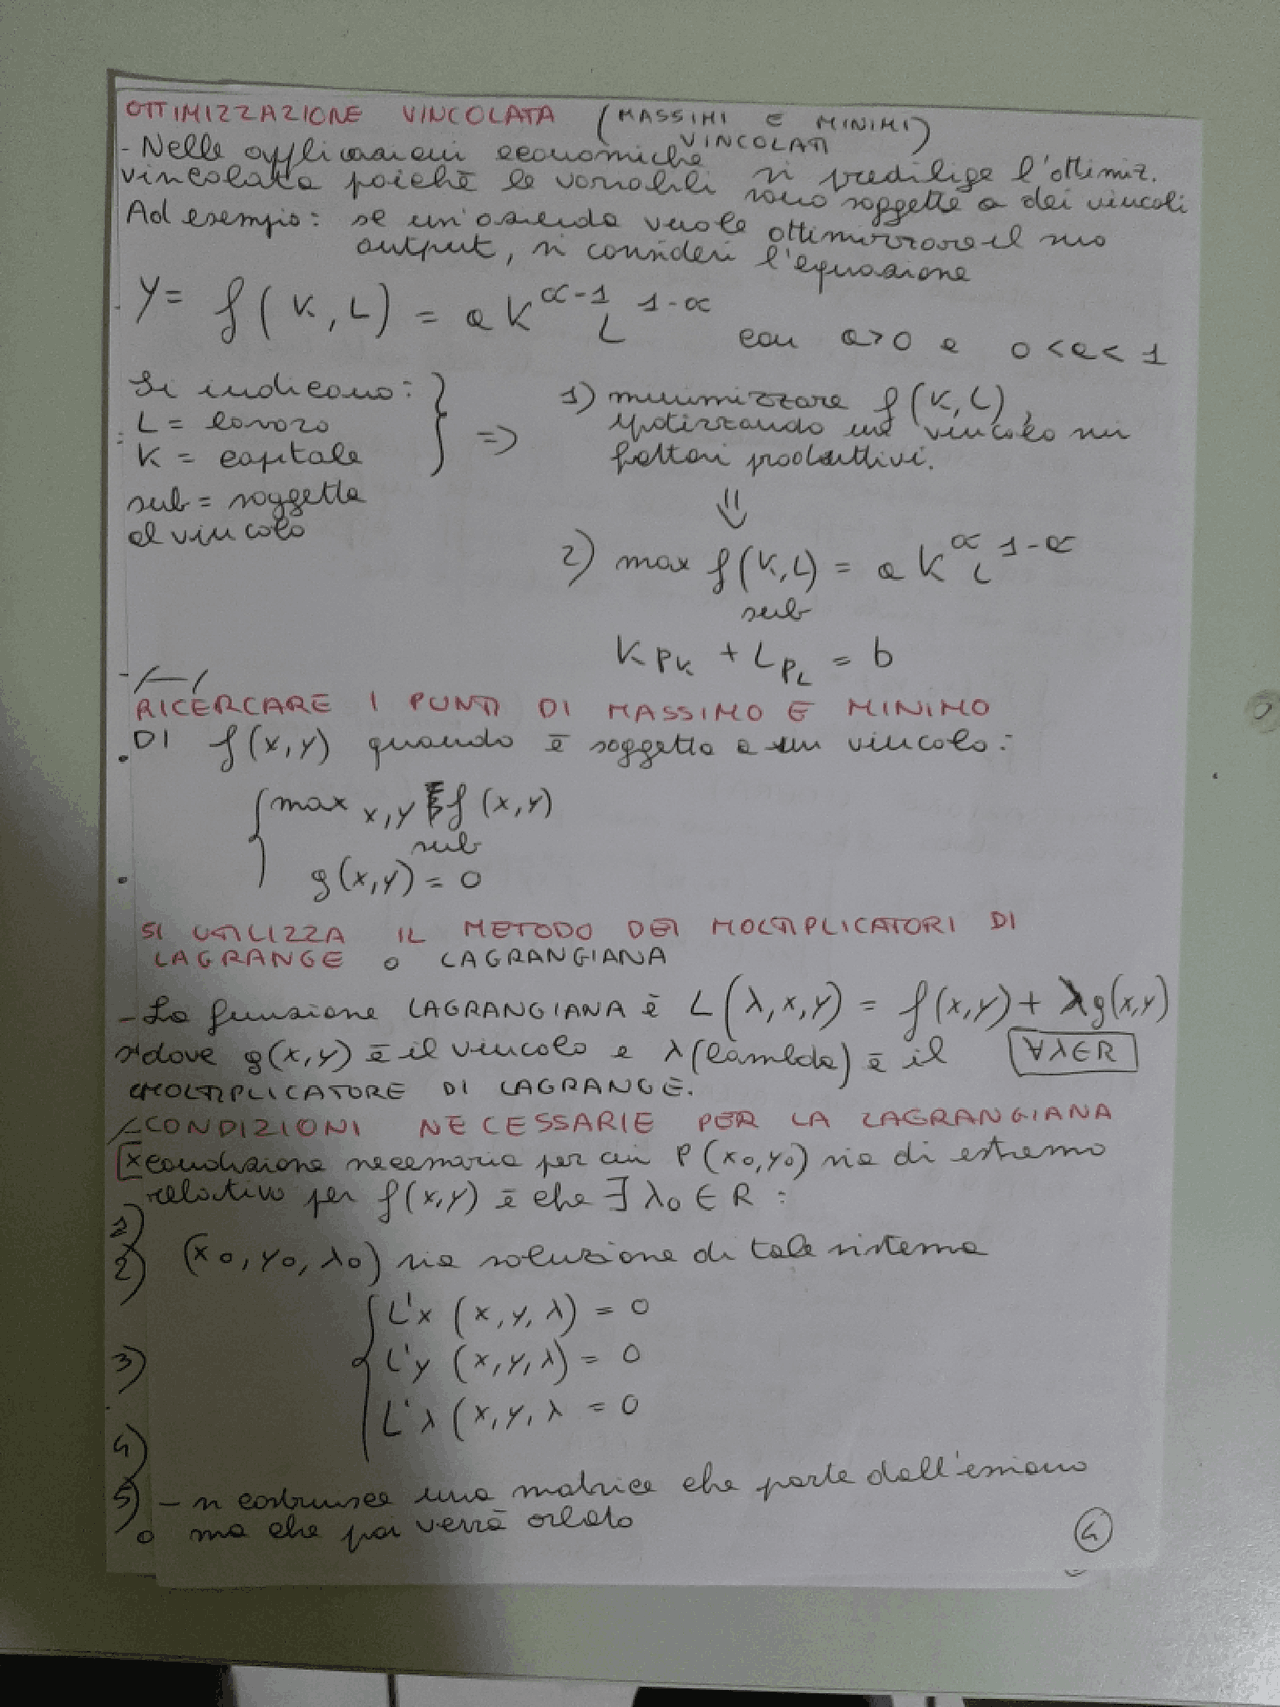 OTTIMIZZAZIONE VINCOLATA (MASSIMI E MINIMI)
VINCOLATI
- Nelle applicazioni economiche si predilige l'ottimiz.
vincolata poichè le variabili sono soggette a dei vincoli
Ad esempio: se un'azienda vuole ottimizzare il suo
output, si consideri l'equazione
Y = f(K, L) = a K^α-1 L^1-α con a>0 e 0<α<1
Si indicano:
L = lavoro
K = capitale
sub = soggetta
al vincolo
=>
1) minimizzare f(K,L),
ipotizzando un vincolo sui
fattori produttivi.
⇓
2) max f(K,L) = a K^α L^1-α
sub
K PK + L PL = b
RICERCARE I PUNTI DI MASSIMO E MINIMO
DI f(x,y) quando è soggetta a un vincolo:
{ max x,y f(x,y)
sub
g(x,y) = 0
SI UTILIZZA IL METODO DEI MOLTIPLICATORI DI
LAGRANGE o LAGRANGIANA
- La funzione LAGRANGIANA è L(λ,x,y) = f(x,y) + λg(x,y)
dove g(x,y) è il vincolo e λ(lambda) è il ∀λ∈R
MOLTIPLICATORE DI LAGRANGE.
CONDIZIONI NECESSARIE PER LA LAGRANGIANA
x condizione necessaria per cui P(x0,y0) sia di estremo
relativo per f(x,y) è che ∃ λ0 ∈ R :
1)
2) (x0, y0, λ0) sia soluzione di tale sistema
{ L'x (x,y,λ) = 0
3) L'y (x,y,λ) = 0
L'λ (x,y,λ = 0
4)
5) - si costruisce una matrice che parte dall'essiano
ma che poi verrà orlato
4